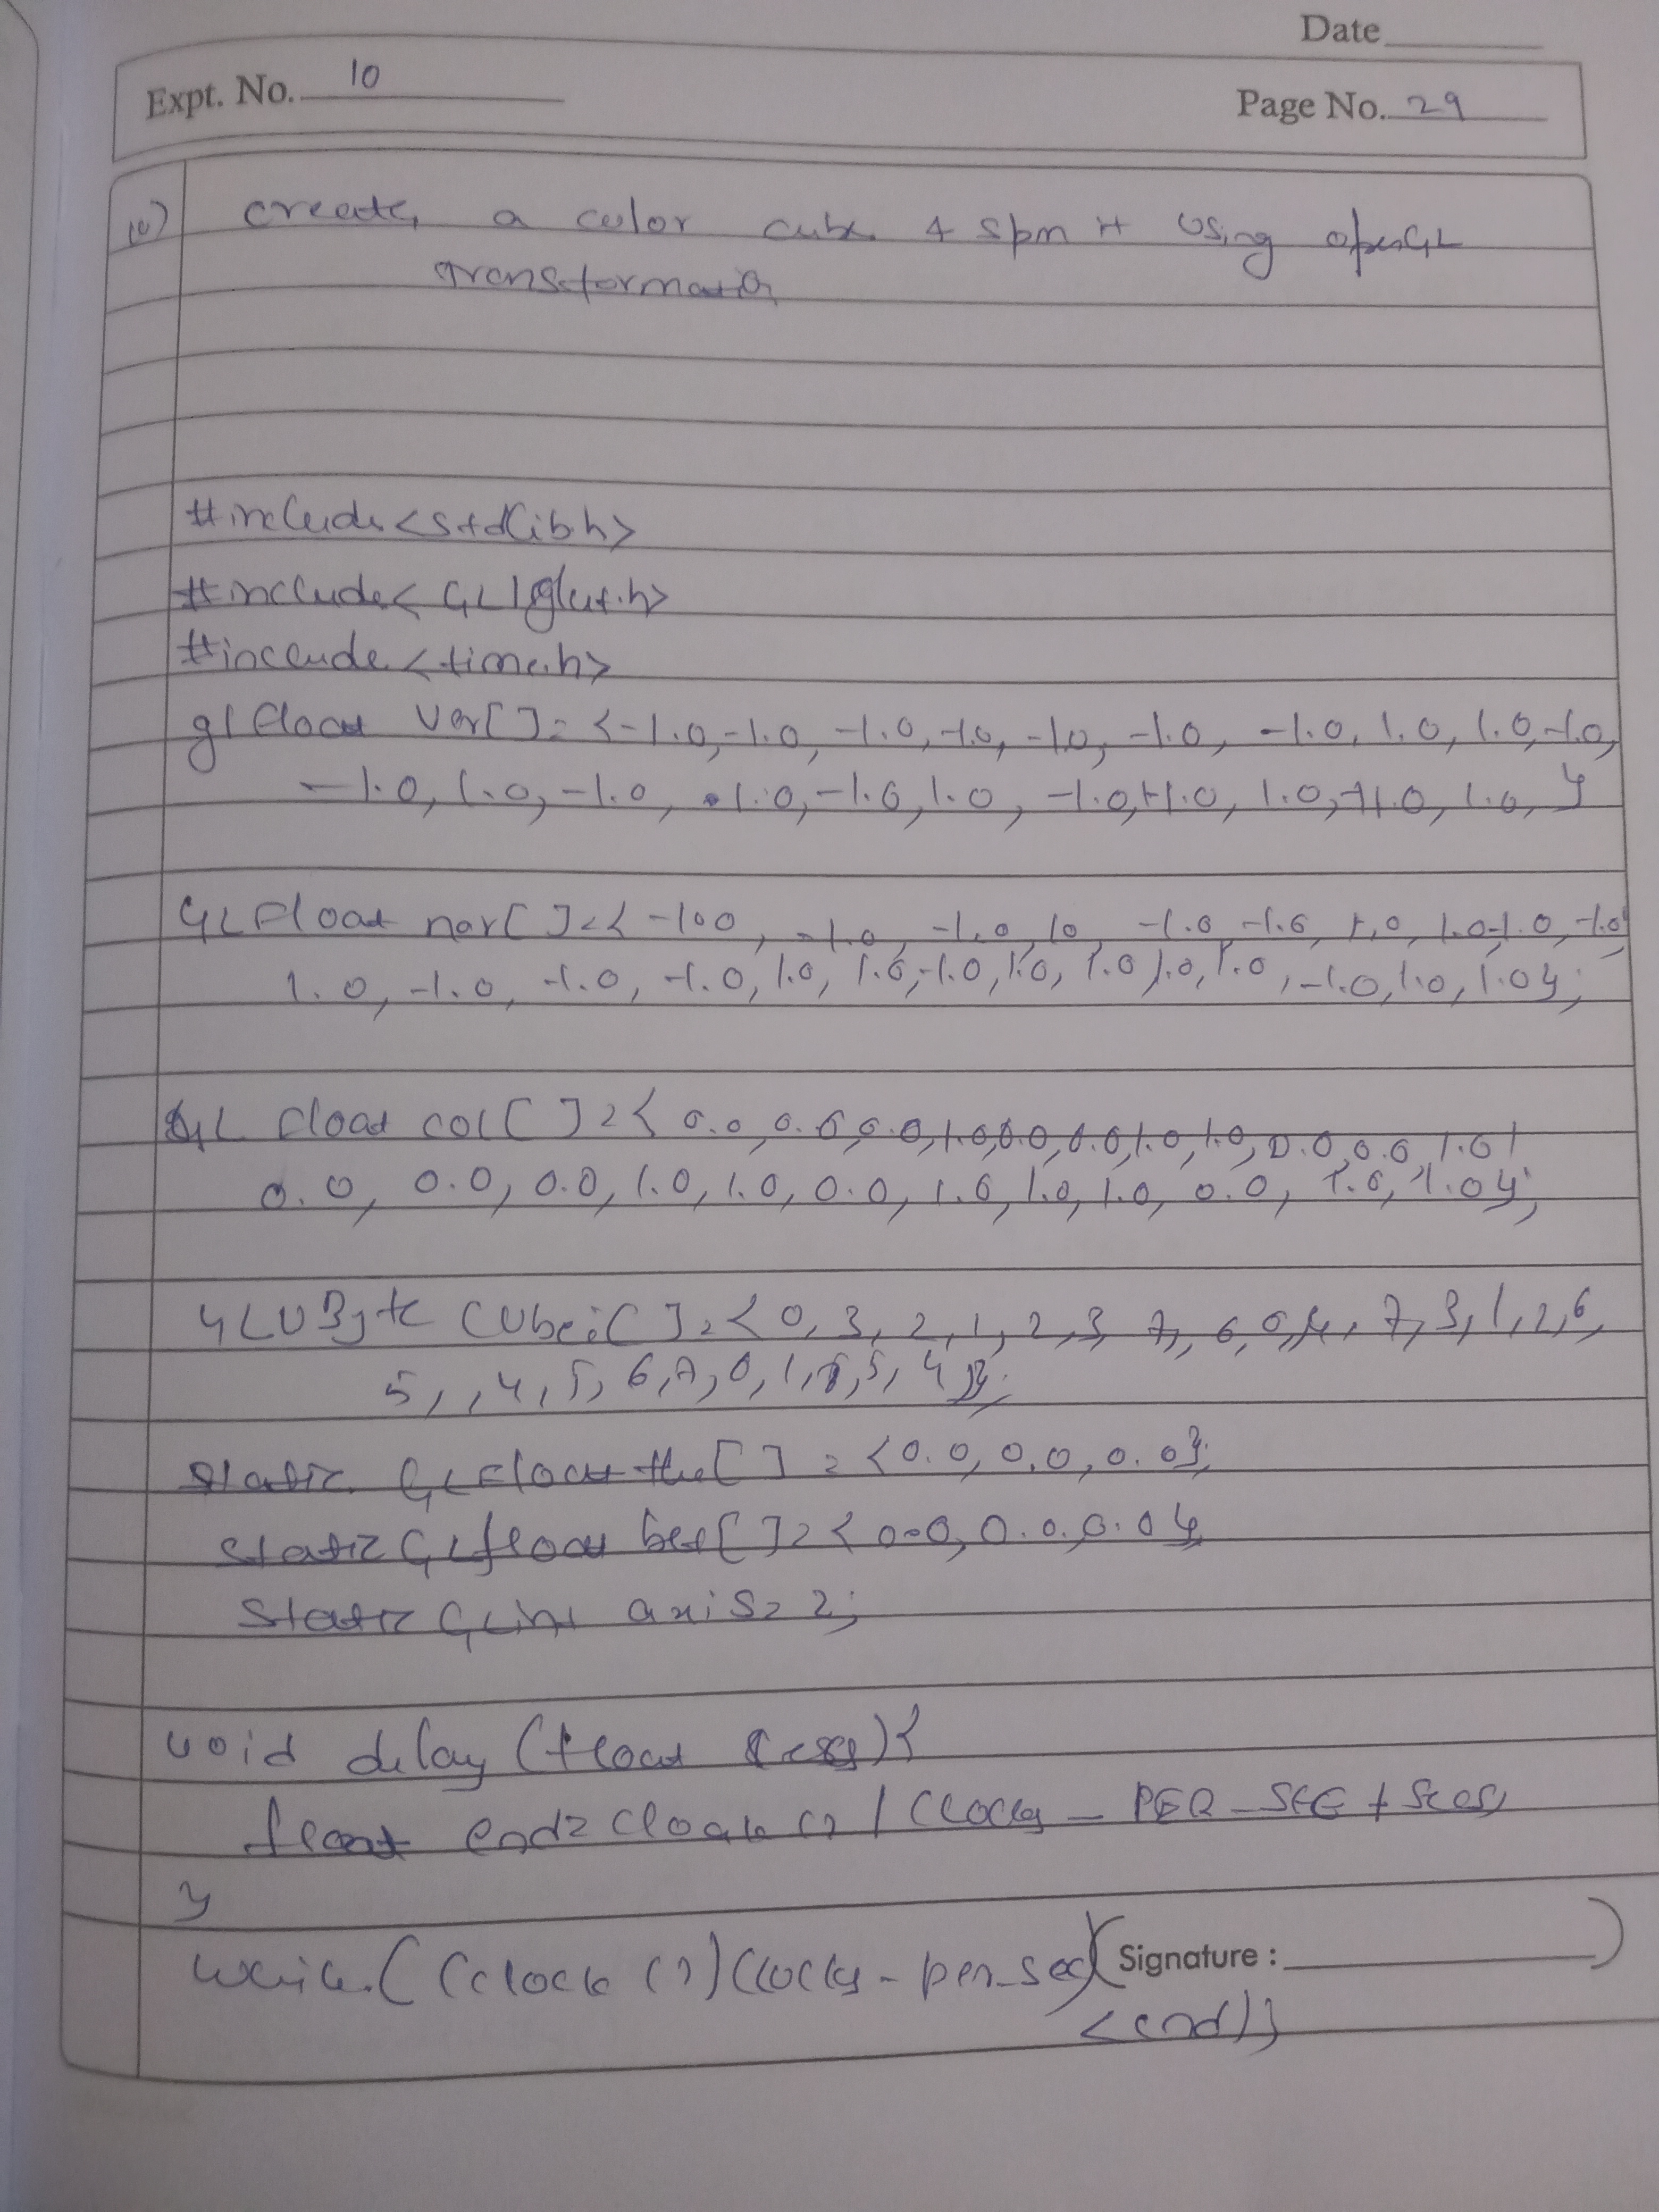 Date
Expt. No. 10
Page No. 29
10) create a color cube & spin it using openGL
transformation
#include<stdlib.h>
#include< GL/glut.h>
#include <time.h>
glfloat ver[ ]= {-1.0,-1.0, -1.0,-1.0, -1.0, -1.0, -1.0, 1.0, 1.0,-1.0,
-1.0, 1.0, -1.0, -1.0, -1.0, 1.0, -1.0, 1.0, 1.0, 1.0, 1.0, }
GLFloat nor[ ]={ -100, -1.0, -1.0, 10, -1.0, -1.0, 1.0, 1.0,-1.0, -1.0
1.0, -1.0, -1.0, -1.0, 1.0, 1.0,-1.0, 1.0, 1.0 1.0, 1.0, -1.0, 1.0, 1.0};
GL float col[ ]={ 0.0, 0.0, 0.0, 1.0, 0.0, 0.0, 1.0, 1.0, 0.0, 0.0 1.0,
0.0, 0.0, 0.0, 1.0, 1.0, 0.0, 1.0, 1.0, 1.0, 0.0, 1.0, 1.0};
GLUByte cubei[ ]={ 0, 3, 2, 1, 2, 3, 7, 6, 0, 4, 7, 3, 1, 2, 6,
5, , 4, 5, 6, 7, 0, 1, 5, 4};
static GLFloat the[ ] = {0.0, 0.0, 0.0};
static GLfloat bet[ ]={ 0.0, 0.0, 0.0};
static GLint axis= 2;
void delay (float secs){
float end= clock () / Clocks - PER - SEC + secs;
}
while ( (clock ()) Clocks - per-sec)
<end);
Signature :